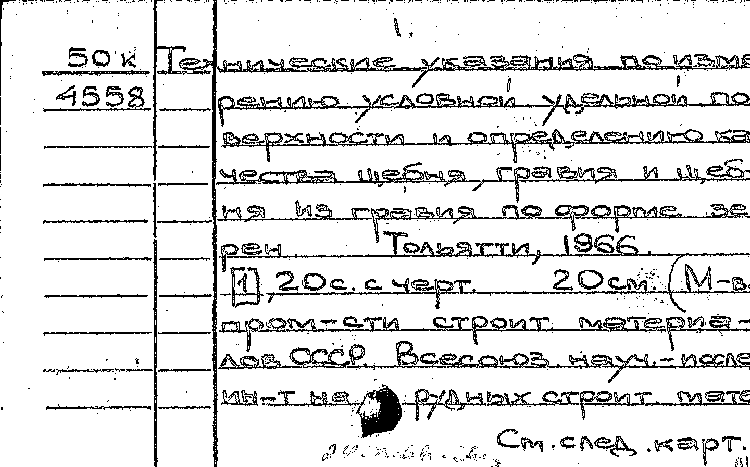 1.
50к Технические указания по изме
4558 рению условной удельной по
верхности и определению ка
чества щебня, гравия и щеб-
ня из гравия по форме зе
рен Тольятти, 1966.
[1], 20с. с черт. 20см. (М-в
пром-сти строит материа-
лов СССР. Всесоюз. науч.-иссле
ин-т не рудных строит мате
См. след. карт.